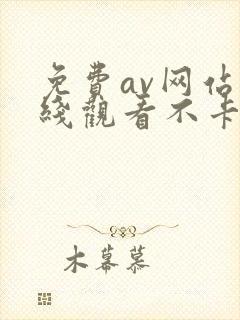 免費av网佔
綫觀看不卡
木幕慕